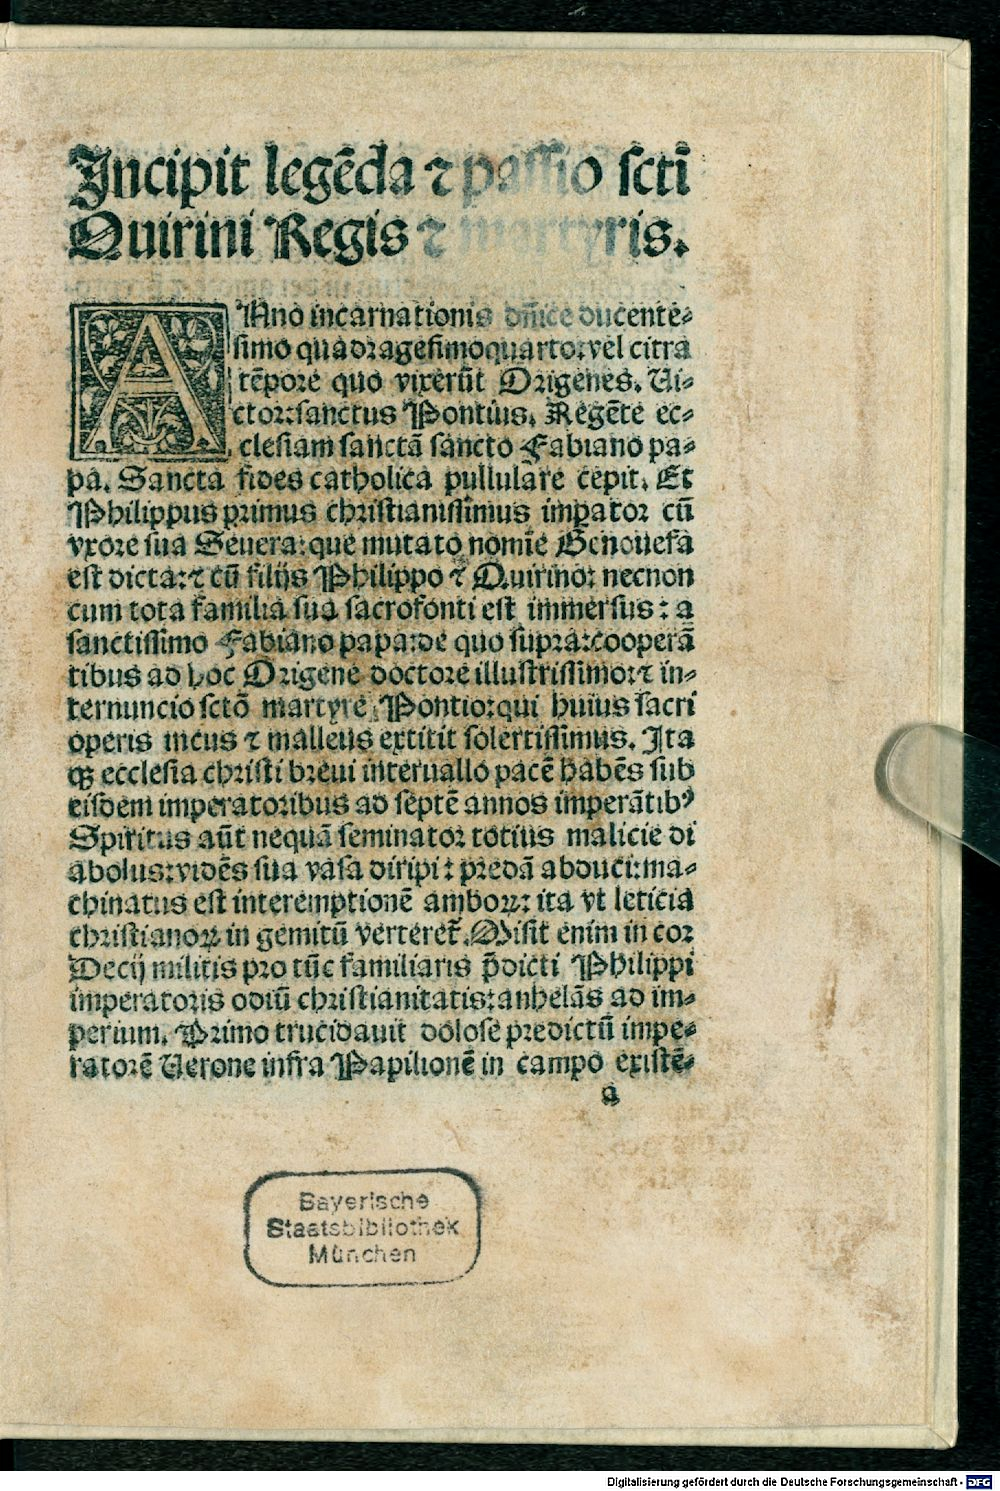 Incipit legēda ⁊ passio sctī
Quirini Regis ⁊ martyris.
ANno incarnationis dn̄ice ducente⸗
simo quadragesimoquarto: vel citra
tēpore quo vixerūt Origenes. Vi⸗
ctor: sanctus Pontius. Regēte ec⸗
clesiam sanctā sancto Fabiano pa⸗
pa. Sancta fides catholica pullulare cepit. Et
Philippus primus christianissimus imꝑator cū
vxore sua Seuera: que mutato nomīe Genouefa
est dicta: ⁊ cū filijs Philippo ⁊ Quirino: necnon
cum tota familia sua sacrofonti est immersus: a
sanctissimo Fabiano papa: de quo supra: cooperā
tibus ad hoc Origene doctore illustrissimo: ⁊ in⸗
ternuncio sctō martyre Pontio: qui huius sacri
operis incus ⁊ malleus extitit solertissimus. Ita
ꝙ ecclesia christi breui interuallo pacē habēs sub
eisdem imperatoribus ad septē annos imperātibꝰ
Spiritus aūt nequā seminator totius malicie di
abolus: vidēs sua vasa diripi: predā abduci: ma⸗
chinatus est interemptionē amboꝝ: ita vt leticia
christianoꝝ in gemitū verteret̄. Misit enim in cor
Decij militis pro tūc familiaris p̄dicti Philippi
imperatoris odiū christianitatis: anhelās ad im⸗
perium. Primo trucidauit dolose predictū impe⸗
ratorē Verone infra Papilionē in campo existē⸗
a
Bayerische
Staatsbibliothek
München
Digitalisierung gefördert durch die Deutsche Forschungsgemeinschaft - DFG